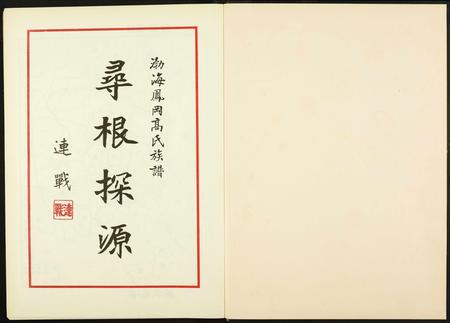 渤海鳳岡高氏族譜
尋根探源
連戰
連戰